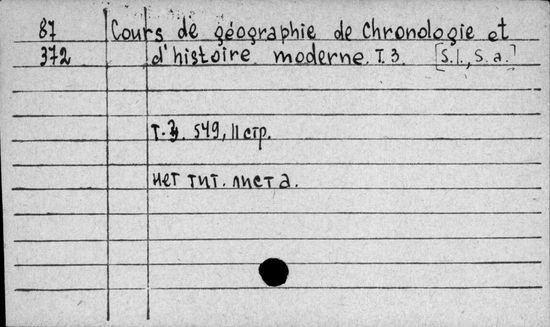 87 Cours de géographie de Chronologie et
372 d'histoire moderne. T. 3. [S. l., S. a.]
Т. 3. 549, II стр.
нет тит. листа.